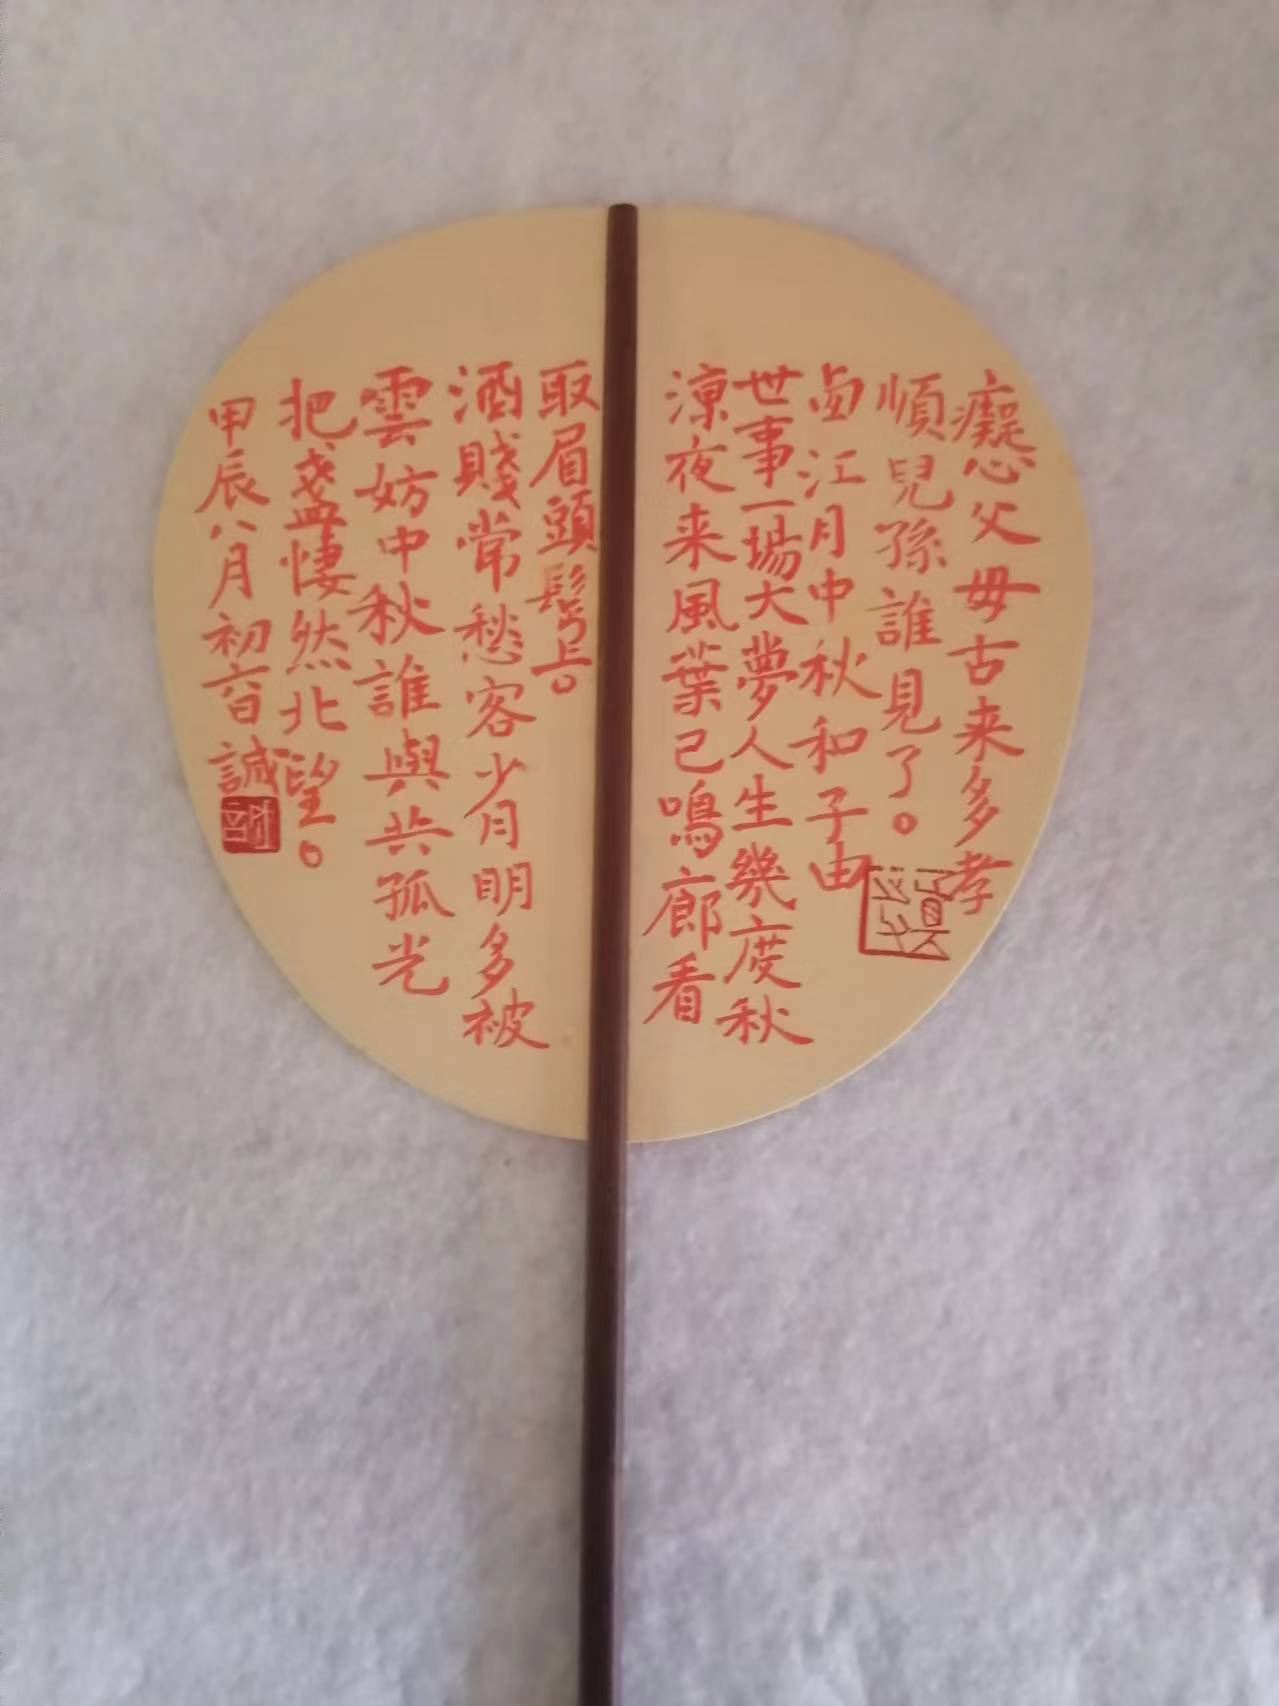 癡心父母古来多孝
順兒孫誰見了。
西江月中秋和子由
世事一場大夢人生幾度秋
涼夜来風葉已鳴廊看
取眉頭鬢上。
酒賤常愁客少月明多被
雲妨中秋誰與共孤光
把盞悽然北望。
甲辰八月初六日誠